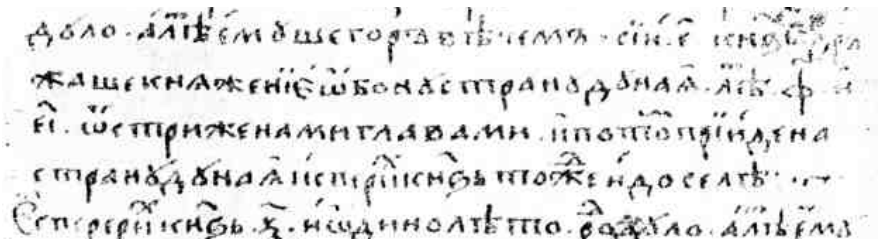 дꙋло · а͗лѣⷮ е͗мꙋ шегоръ вѣчемъ · сїи · е҃ · кнѧⷥь дръ
жаше кнѧженїе ѡ҆бонꙋ странꙋ дꙋнаѧ · лѣⷮ · ф҃ · и
еі҃ · ѡ҆стриженами главами · и҆ потоⷨ прїиде на
странꙋ дꙋнаѧ и҆сперїⷯ кнѧⷥь тоⷤе и҆ доселѣ ·
Есперерїⷯ кнѧⷥь · ѯ҃ · и҆ ѡ҆дино лѣто · роⷣ дꙋло · а лѣⷮ е͗мꙋ